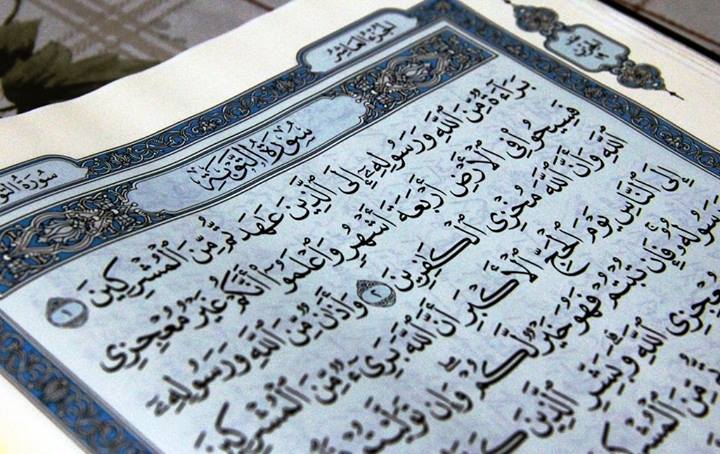 الجزء العاشر
سورة التو
سُورَةُ التَّوْبَةِ
بَرَآءَةٌ مِّنَ ٱللَّهِ وَرَسُولِهِۦٓ إِلَى ٱلَّذِينَ عَٰهَدتُّم مِّنَ ٱلْمُشْرِكِينَ ١
فَسِيحُوا۟ فِى ٱلْأَرْضِ أَرْبَعَةَ أَشْهُرٍ وَٱعْلَمُوٓا۟ أَنَّكُمْ غَيْرُ مُعْجِزِى
ٱللَّهِ وَأَنَّ ٱللَّهَ مُخْزِى ٱلْكَٰفِرِينَ ٢ وَأَذَٰنٌ مِّنَ ٱللَّهِ وَرَسُولِهِۦٓ
إِلَى ٱلنَّاسِ يَوْمَ ٱلْحَجِّ ٱلْأَكْبَرِ أَنَّ ٱللَّهَ بَرِىٓءٌ مِّنَ ٱلْمُشْرِكِينَ
وَرَسُولُهُۥ فَإِن تُبْتُمْ فَهُوَ خَيْرٌ لَّكُمْ وَإِن تَوَلَّيْتُمْ
مُعْجِزِى ٱللَّهِ وَبَشِّرِ ٱلَّذِينَ
مِّنَ ٱلْمُشْرِكِينَ